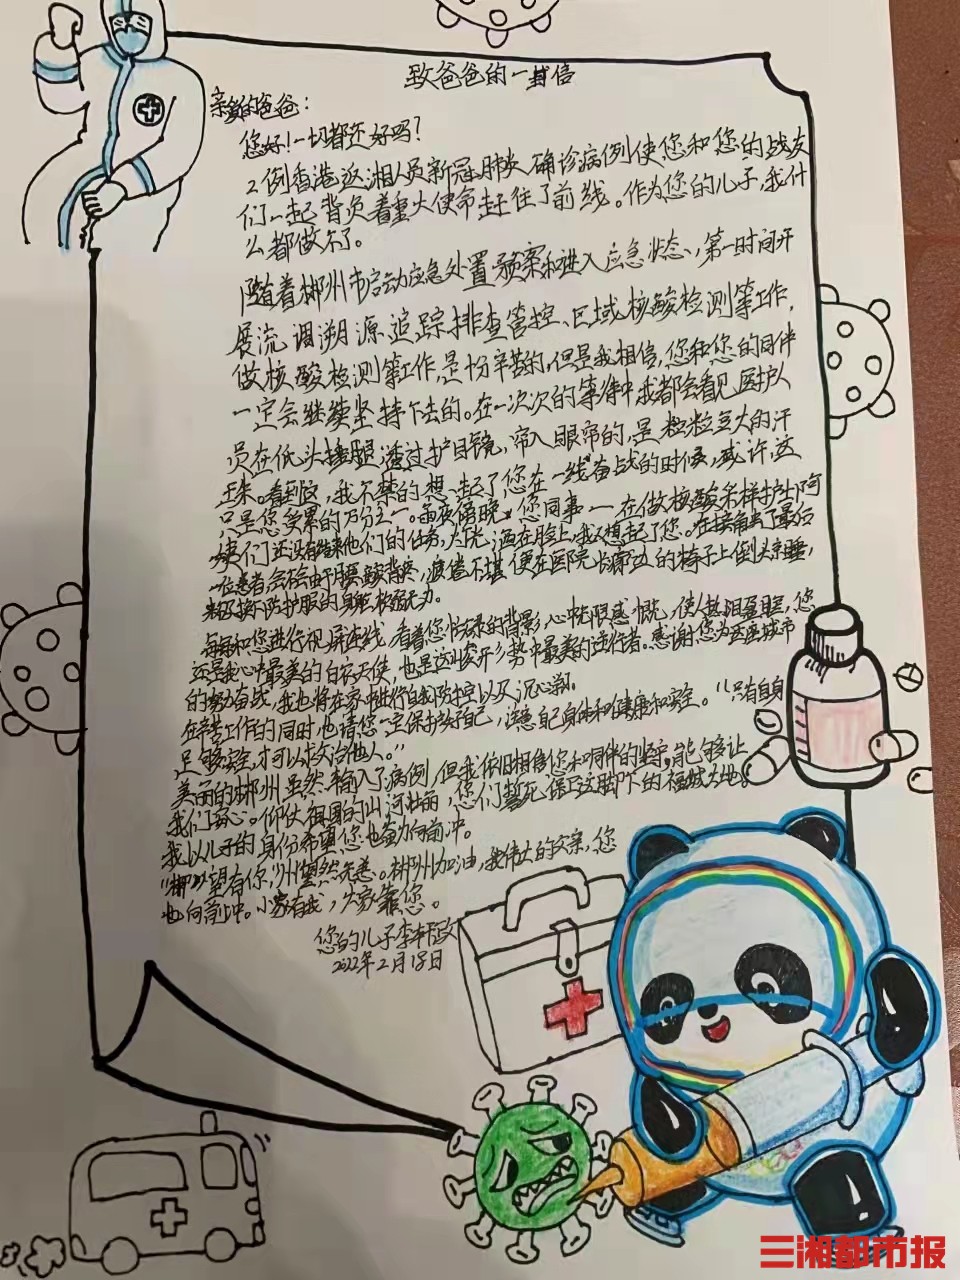 致爸爸的一封信
亲爱的爸爸：
您好!一切都还好吗？
2例香港返湘人员新冠肺炎确诊病例使您和您的战友
们一起背负着重大使命赶往了前线。作为您的儿子，我什
么都做不了。
随着郴州市启动应急处置预案和进入应急状态、第一时间开
展流调溯源、追踪排查管控、区域核酸检测等工作，
做核酸检测等工作，是十份辛苦的，但是我相信，您和您的同伴
一定会继续坚持下去的。在一次次的等待中我都会看见医护人
员在低头 透过护目镜，帘入眼帘的，是粒粒豆大的汗
珠。看到这，我不禁的想起了您在一线奋战的时候，或许，这
只是您受累的万分之一。 您同事一一在做核酸采样护士阿
姨们还没有结束他们的任务，灯光洒在脸上，我又想起了您。在接
一位患者，会 腰酸背疼，疲倦不堪 便在医院长廊边的椅子上倒头
防护服的身躯
每每和您进行视屏连线，看着您 的背影，心中无限感慨，使人热泪盈眶，您
还是我心中最美的白衣天使，也是这 中最美的逆行者。感谢您为 城市
的努力奋战，我也将在家中进行自我防控以及
在辛苦工作的同时，也请您一定保护好自己，注意自己身体和健康和安全。“只有自身
足够安全，才可以救治他人。”
美丽的郴州虽然输入了病例，但我依旧相信您和同伴的坚守，能够让
我们安心。仰仗祖国的山河壮丽，您们誓死保卫这脚下的福城之地。
我以儿子的身份希望您也努力向前冲。
望有你， 郴州加油，我伟大的父亲，您
也向前冲。小家有我，大家靠您。
您的儿子李
2022年2月18日
三湘都市报